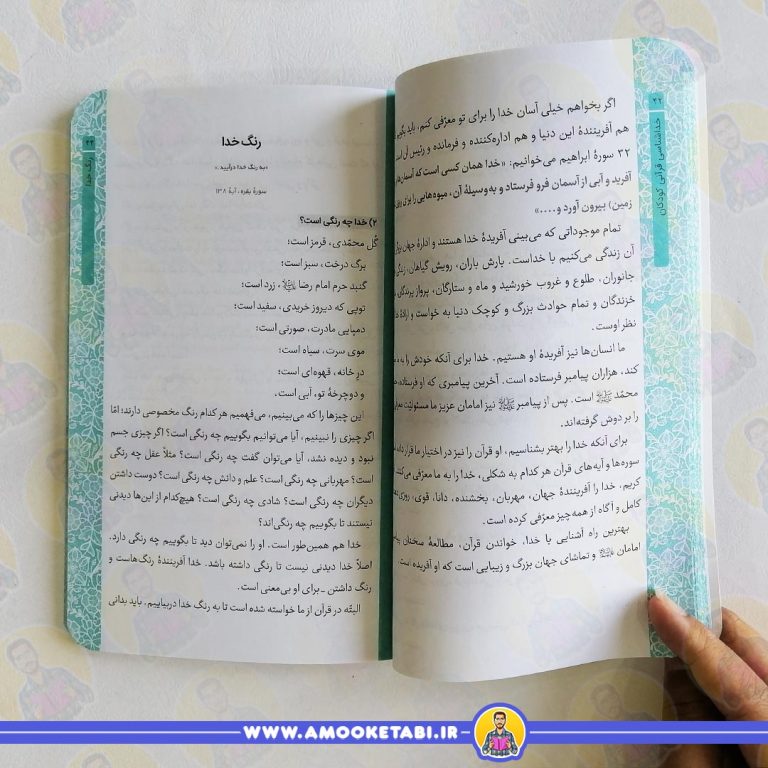 ۲۲
خداشناسی قرآنی کودکان
اگر بخواهم خیلی آسان خدا را برای تو معرّفی کنم، باید بگویم
هم آفرینندهٔ این دنیا و هم اداره‌کننده و فرمانده و رئیس آن است
۳۲ سورهٔ ابراهیم می‌خوانیم: «خدا همان کسی است که آسمان‌ها
آفرید و آبی از آسمان فرو فرستاد و به‌وسیلهٔ آن، میوه‌هایی را برای روزی
زمین) بیرون آورد و....»
تمام موجوداتی که می‌بینی آفریدهٔ خدا هستند و ادارهٔ جهان
آن زندگی می‌کنیم با خداست. بارش باران، رویش گیاهان، زندگی
جانوران، طلوع و غروب خورشید و ماه و ستارگان، پرواز پرندگان
خزندگان و تمام حوادث بزرگ و کوچک دنیا به خواست و ارادهٔ
نظر اوست.
ما انسان‌ها نیز آفریدهٔ او هستیم. خدا برای آنکه خودش را به
کند، هزاران پیامبر فرستاده است. آخرین پیامبری که او فرستاده
محمّد ﷺ است. پس از پیامبر ﷺ نیز امامان عزیز ما مسئولیّت
را بر دوش گرفته‌اند.
برای آنکه خدا را بهتر بشناسیم، او قرآن را نیز در اختیار ما قرار داده
سوره‌ها و آیه‌های قرآن هر کدام به شکلی، خدا را به ما معرّفی می‌کند.
کریم، خدا را آفرینندهٔ جهان، مهربان، بخشنده، دانا، قوی، روزی
کامل و آگاه از همه‌چیز معرّفی کرده است.
بهترین راه آشنایی با خدا، خواندن قرآن، مطالعهٔ سخنان
امامان و تماشای جهان بزرگ و زیبایی است که او آفریده است.
۲۳
رنگ خدا
رنگ خدا
«به رنگ خدا درآیید.»
سورهٔ بقره، آیهٔ ۱۳۸
۲) خدا چه رنگی است؟
گُل محمّدی، قرمز است؛
برگ درخت، سبز است؛
گنبد حرم امام رضا، زرد است؛
توپی که دیروز خریدی، سفید است؛
دمپایی مادرت، صورتی است؛
موی سرت، سیاه است؛
درِ خانه، قهوه‌ای است؛
و دوچرخهٔ تو، آبی است.
این چیزها را که می‌بینیم، می‌فهمیم هر کدام رنگ مخصوصی دارند؛ امّا
اگر چیزی را نبینیم، آیا می‌توانیم بگوییم چه رنگی است؟ اگر چیزی جسم
نبود و دیده نشد، آیا می‌توان گفت چه رنگی است؟ مثلاً عقل چه رنگی
است؟ مهربانی چه رنگی است؟ علم و دانش چه رنگی است؟ دوست داشتن
دیگران چه رنگی است؟ شادی چه رنگی است؟ هیچ‌کدام از این‌ها دیدنی
نیستند تا بگوییم چه رنگی‌اند؟
خدا هم همین‌طور است. او را نمی‌توان دید تا بگوییم چه رنگی دارد.
اصلاً خدا دیدنی نیست تا رنگی داشته باشد. خدا آفرینندهٔ رنگ‌هاست و
رنگ داشتن ـ برای او بی‌معنی است.
البتّه در قرآن از ما خواسته شده است تا به رنگ خدا دربیاییم. باید بدانی
WWW.AMOOKETABI.IR